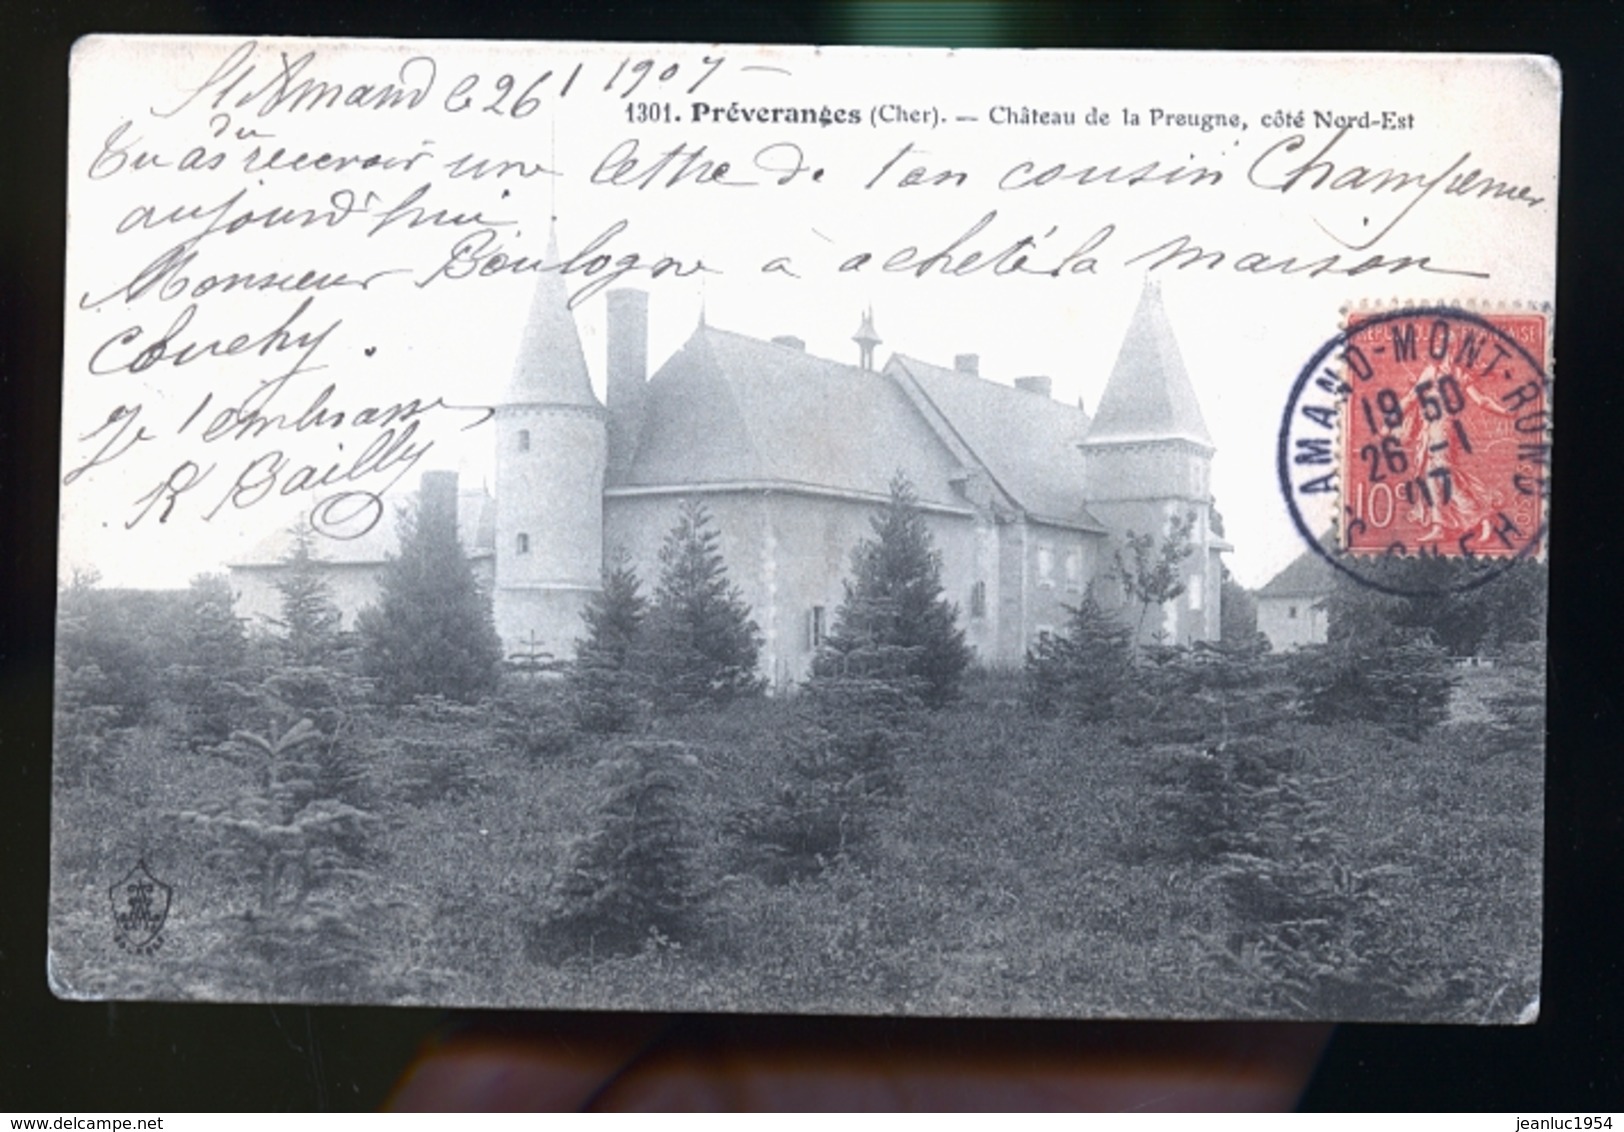 St Amand le 26/1 1907 —
1301. Préveranges (Cher). — Château de la Preugne, côté Nord-Est
du
Tu as recevoir une lettre de ton cousin
aujourd'hui
Monsieur Boulogne à acheté la maison
Je t'embrasse
R Bailly
ST AMAND-MONT-ROND
CHER
19 50
26 -1
07
10c
jeanluc1954